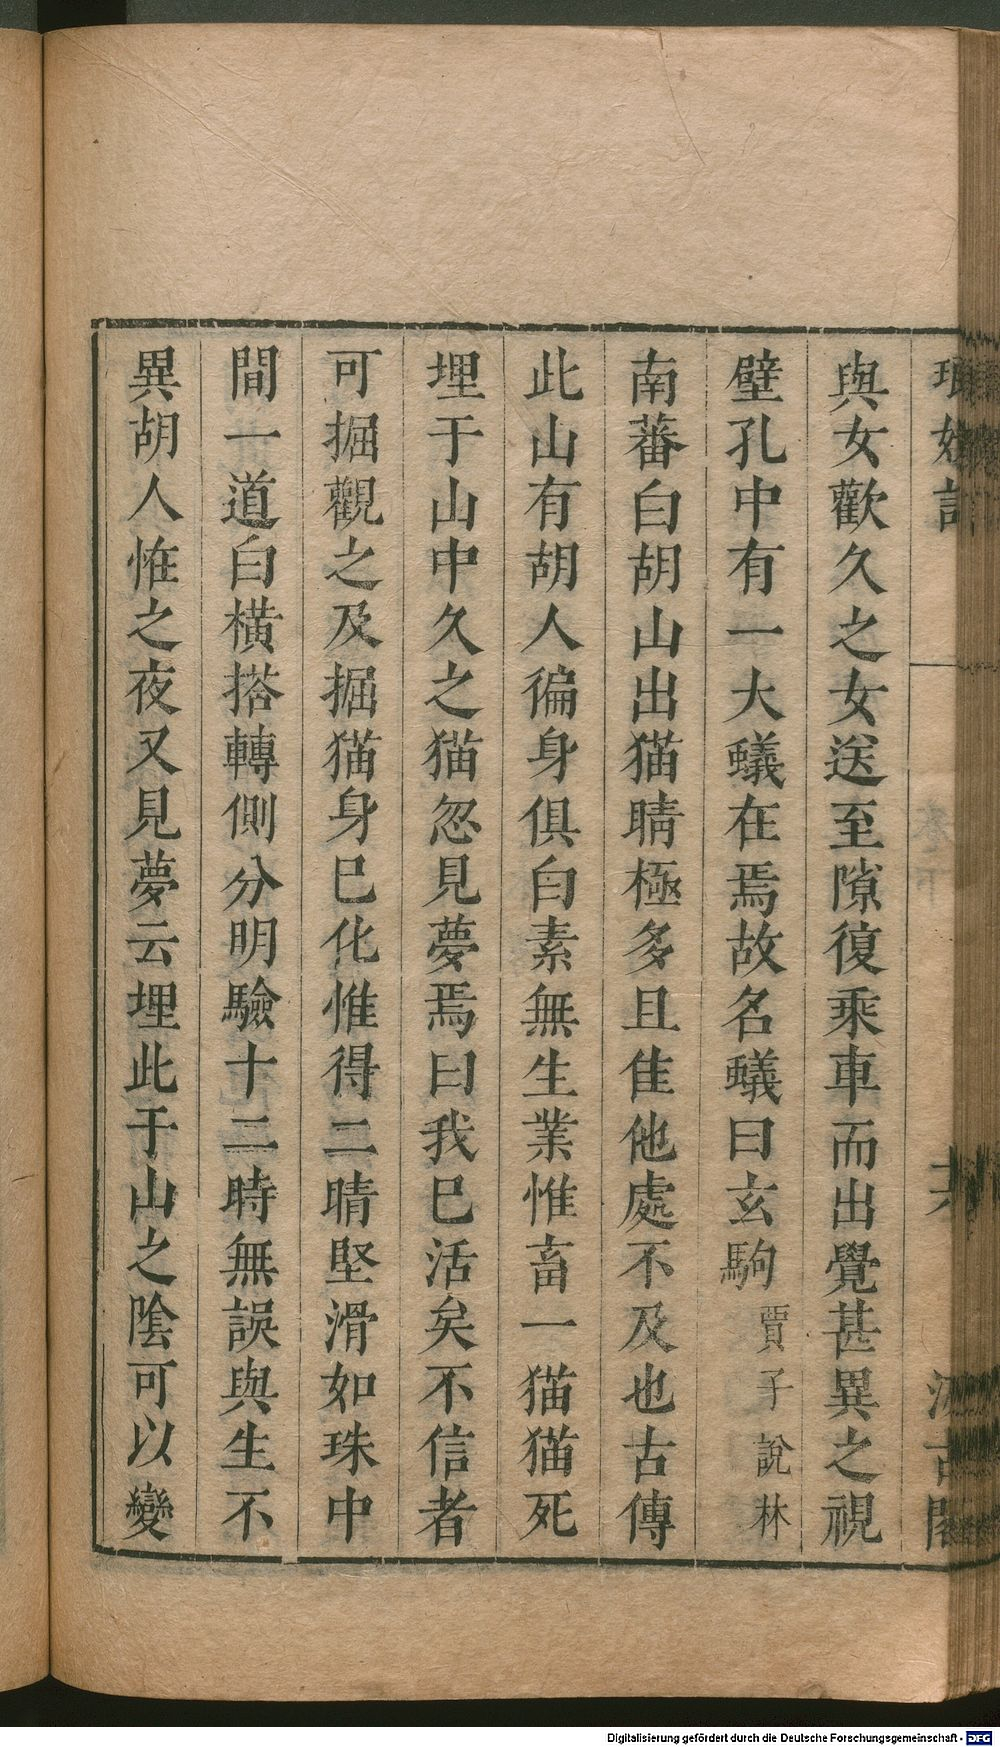 與女歡久之女送至隙復乘車而出覺甚異之視
壁孔中有一大蟻在焉故名蟻曰玄駒 賈子說林
南蕃白胡山出猫睛極多且佳他處不及也古傳
此山有胡人徧身俱白素無生業惟畜一猫猫死
埋于山中久之猫忽見夢焉曰我巳活矣不信者
可掘觀之及掘猫身巳化惟得二睛堅滑如珠中
間一道白橫搭轉側分明驗十二時無誤與生不
異胡人恠之夜又見夢云埋此于山之陰可以變
Digitalisierung gefördert durch die Deutsche Forschungsgemeinschaft - DFG